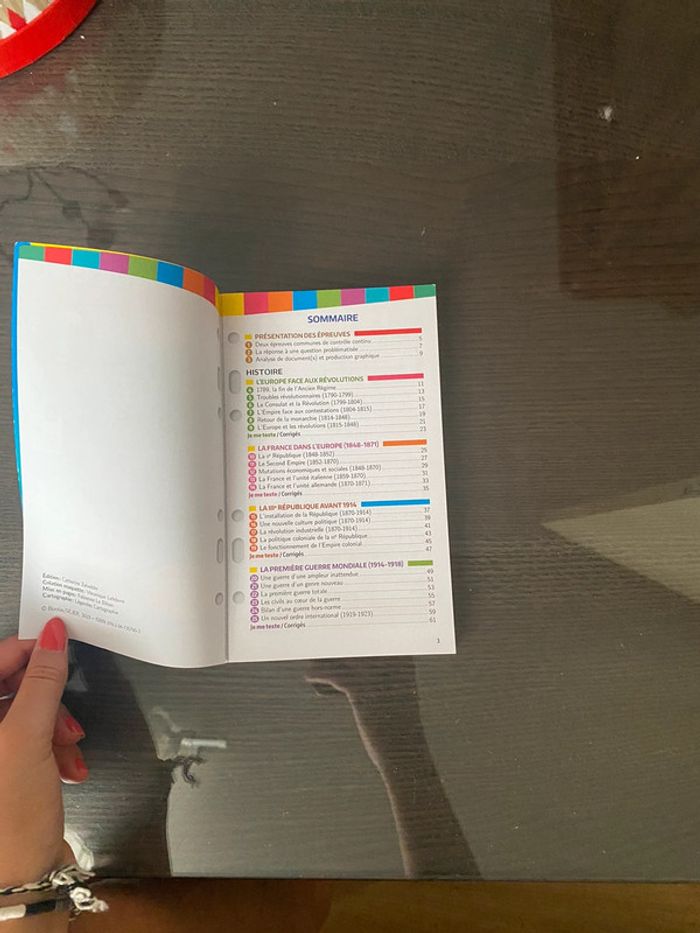 Édition: Catherine
Création maquette: Véronique Lefebvre
Mise en pages:
Cartographie: Légendes Cartographie
SOMMAIRE
PRÉSENTATION DES ÉPREUVES
1 Deux épreuves communes de contrôle continu 5
2 La réponse à une question problématisée 7
3 Analyse de document(s) et production graphique 9
HISTOIRE
L'EUROPE FACE AUX RÉVOLUTIONS
4 1789, la fin de l'Ancien Régime 11
5 Troubles révolutionnaires (1790-1799) 13
6 Le Consulat et la Révolution (1799-1804) 15
7 L'Empire face aux contestations (1804-1815) 17
8 Retour de la monarchie (1814-1848) 19
9 L'Europe et les révolutions (1815-1848) 21
Je me teste / Corrigés 23
LA FRANCE DANS L'EUROPE (1848-1871)
10 La IIe République (1848-1852) 25
11 Le Second Empire (1852-1870) 27
12 Mutations économiques et sociales (1848-1870) 29
13 La France et l'unité italienne (1859-1870) 31
14 La France et l'unité allemande (1870-1871) 33
Je me teste / Corrigés 35
LA IIIe RÉPUBLIQUE AVANT 1914
15 L'installation de la République (1870-1914) 37
16 Une nouvelle culture politique (1870-1914) 39
17 La révolution industrielle (1870-1914) 41
18 La politique coloniale de la IIIe République 43
19 Le fonctionnement de l'Empire colonial 45
Je me teste / Corrigés 47
LA PREMIÈRE GUERRE MONDIALE (1914-1918)
20 Une guerre d'une ampleur inattendue 49
21 Une guerre d'un genre nouveau 51
22 La première guerre totale 53
23 Les civils au cœur de la guerre 55
24 Bilan d'une guerre hors-norme 57
25 Un nouvel ordre international (1919-1923) 59
Je me teste / Corrigés 61
3